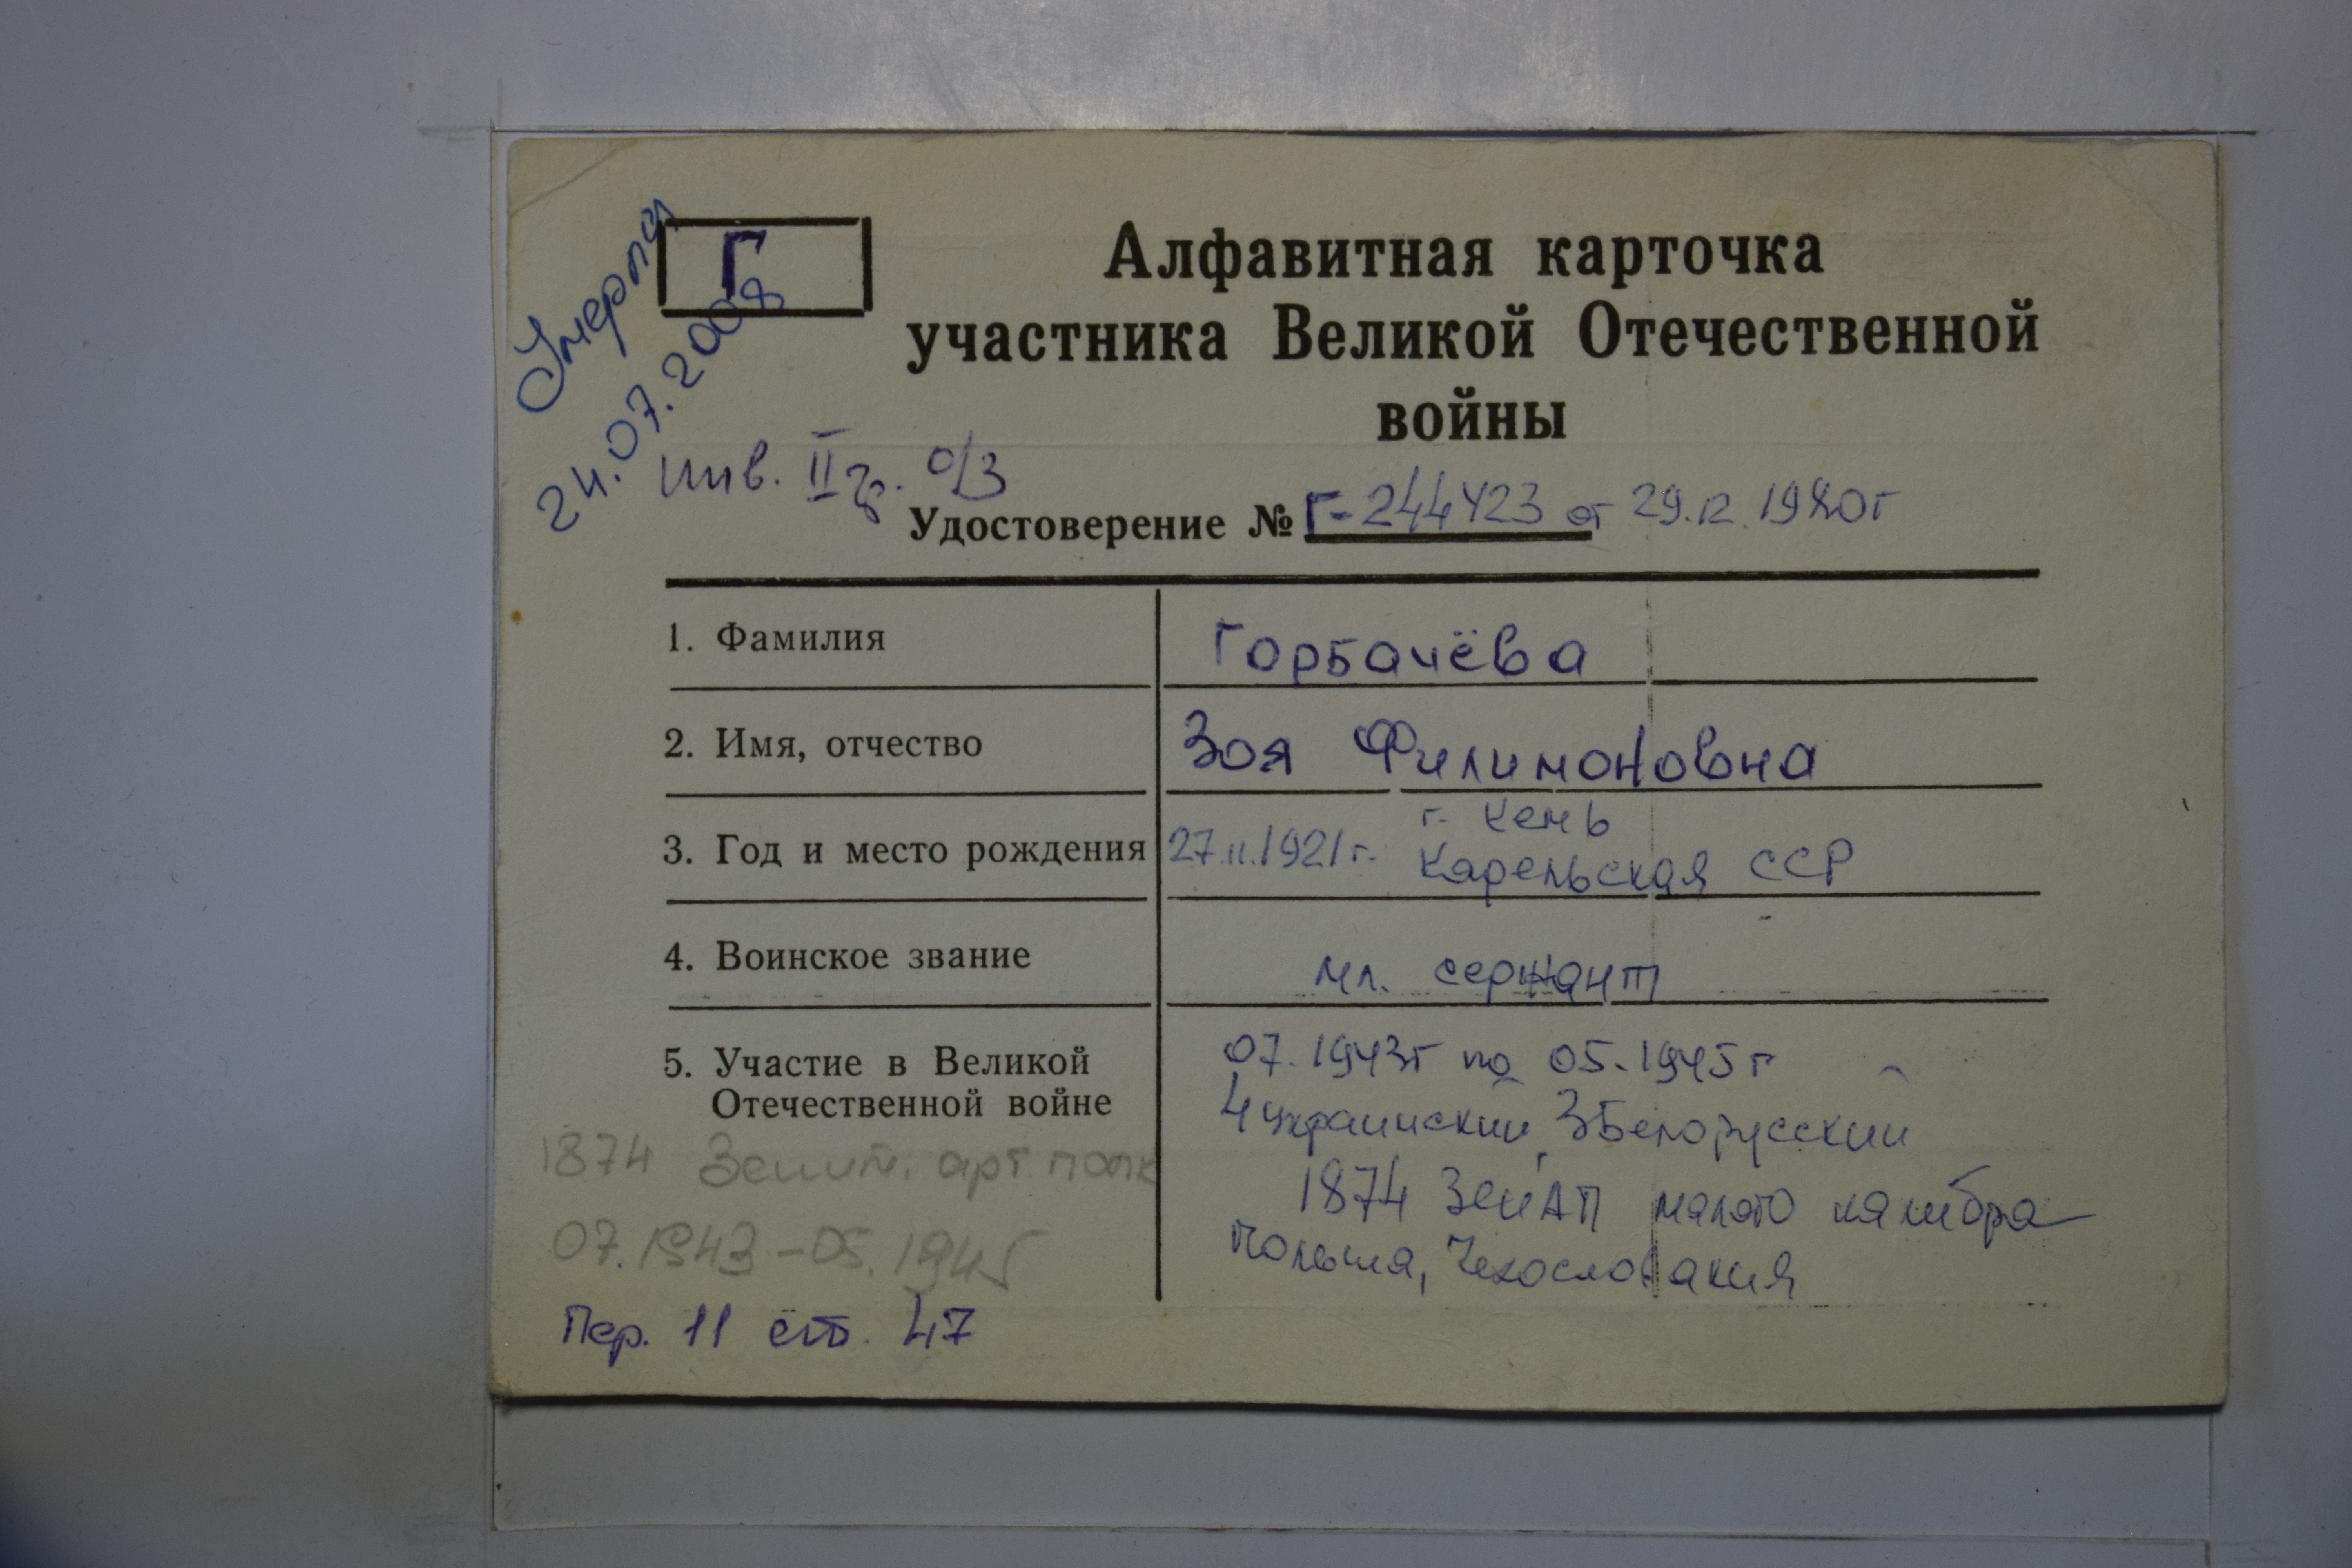 Умерла
24.07.2008
Г
Алфавитная карточка
участника Великой Отечественной
войны
инв. II гр. о/з
Удостоверение № Г-244423 от 29.12.1980г
1. Фамилия Горбачёва
2. Имя, отчество Зоя Филимоновна
г. Кемь
3. Год и место рождения 27.11.1921г. Карельская ССР
4. Воинское звание мл. сержант
5. Участие в Великой
Отечественной войне
07.1943г по 05.1945г
4 украинский, 3 Белорусский
1874 ЗенАП малого калибра
Польша, Чехословакия
1874 Зенит. арт. полк
07.1943-05.1945
Пер. 11 ст. 47